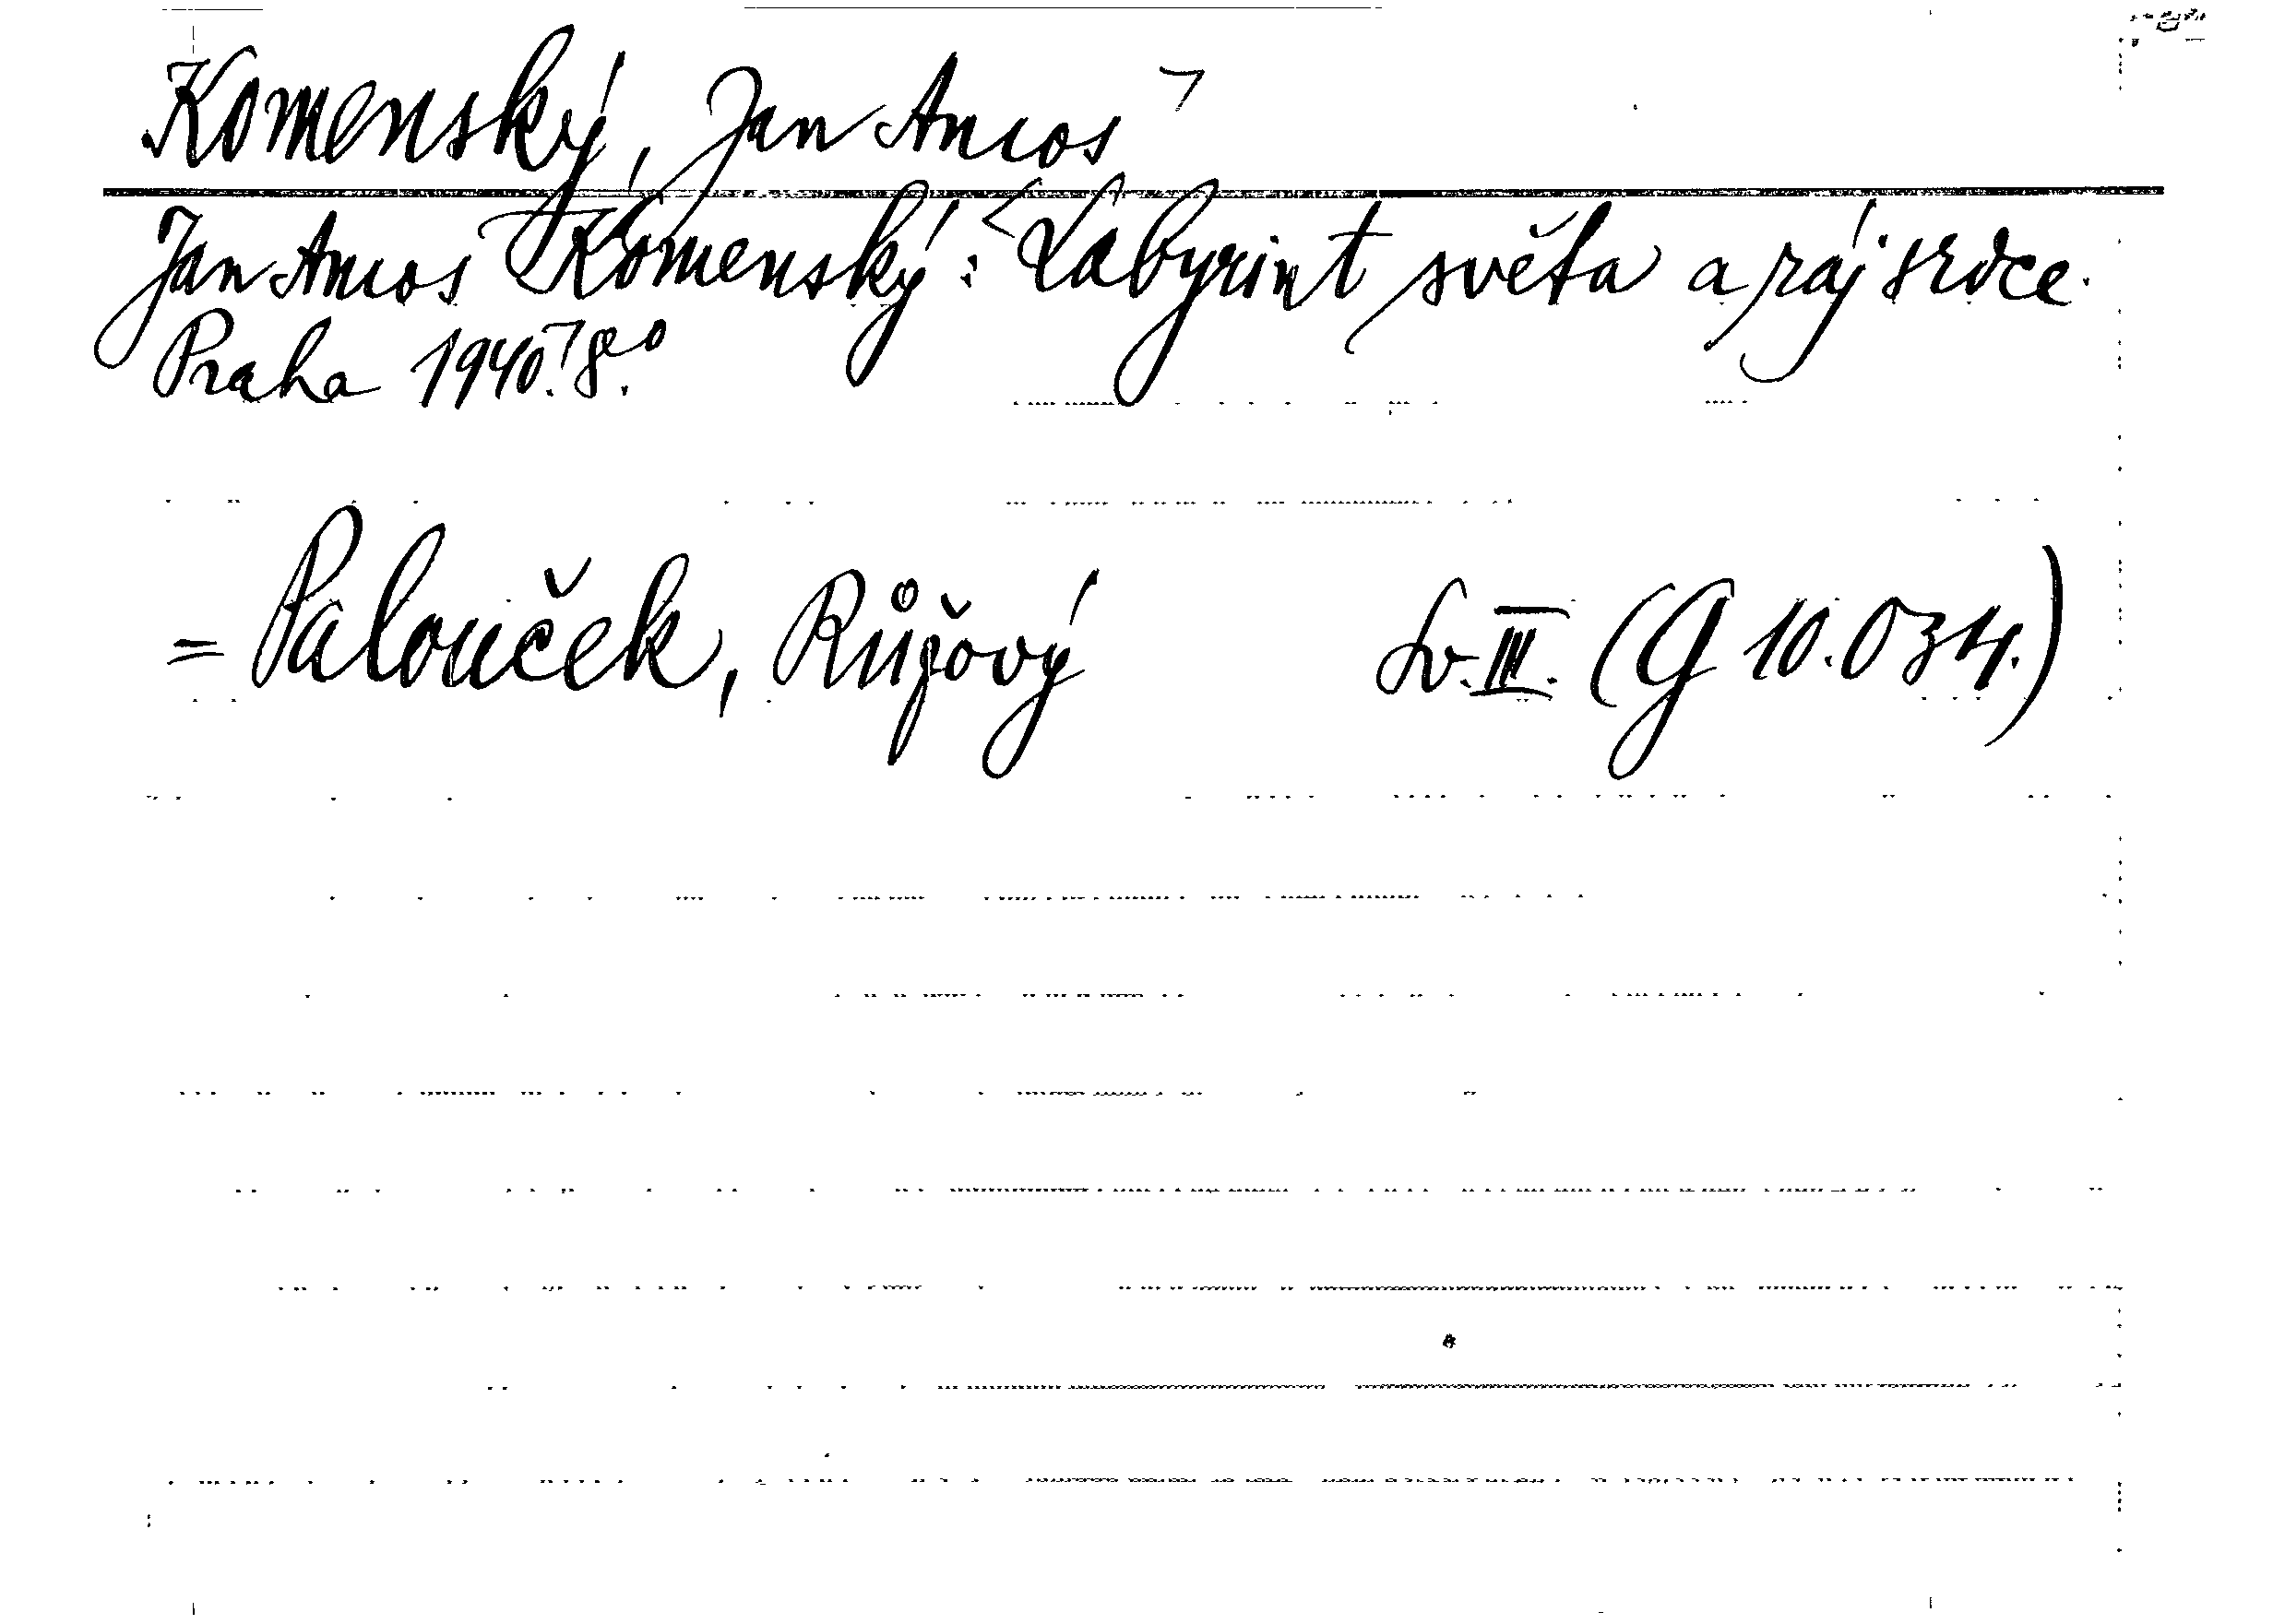 Komenský, Jan Amos
Jan Amos Komenský: Labyrint světa a ráj srdce.
Praha 1940. 8°.
= Palouček, Růžový Sv. III. (G 10.034.)